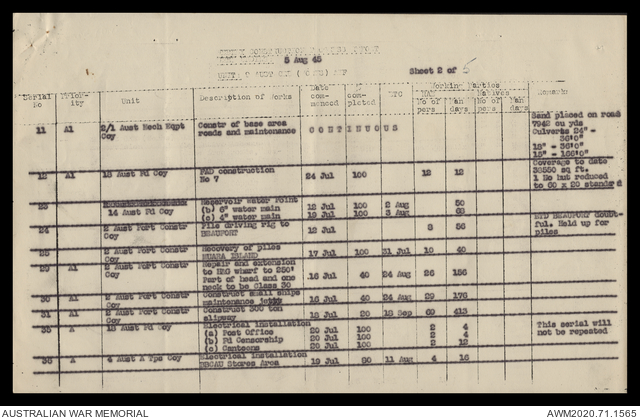 5 Aug 45
Sheet 2 of 5
Serial No Priority Unit Description of Works Date commenced % completed ETC Working Parties Remarks
RAE Natives
No of pers Man days No of pers Man days
11 A1 2/1 Aust Mech Eqpt Coy Constr of base area roads and maintenance CONTINUOUS Sand placed on road
7942 cu yds
Culverts 24" -
36'0"
18" - 36'0"
15" - 166'0"
12 A1 18 Aust Fd Coy PAD construction No 7 24 Jul 100 12 12 Coverage to date
36550 sq ft.
1 No but reduced
to 60 x 20 standrd
23 14 Aust Fd Coy Reservoir Water Point
(b) 6" water main 12 Jul 100 2 Aug 50
(c) 4" water main 19 Jul 100 3 Aug 63
24 2 Aust Port Constr Coy Pile driving rig to BEAUFORT 12 Jul 8 56 BEAUFORT doubtful. Held up for piles
25 2 Aust Port Constr Coy Recovery of piles MUARA ISLAND 17 Jul 100 31 Jul 10 40
29 A1 2 Aust Port Constr Coy Repair and extension
wharf to 250'
Part of head and one
neck to be Class 30 16 Jul 40 24 Aug 26 156
30 A1 2 Aust Port Constr Coy Construct small ships
maintenance 16 Jul 40 24 Aug 29 176
31 A1 2 Aust Port Constr Coy Construct 300 ton
slipway 18 Jul 20 18 Sep 69 413
35 A 18 Aust Fd Coy Electrical installation
(a) Post Office 20 Jul 100 2 4
(b) Fd Censorship 20 Jul 100 2 4
(c) Canteens 20 Jul 100 2 12
This serial will
not be repeated
36 A 4 Aust A Tps Coy Electrical Installation
Stores Area 19 Jul 80 11 Aug 4 16
AUSTRALIAN WAR MEMORIAL
AWM2020.71.1565